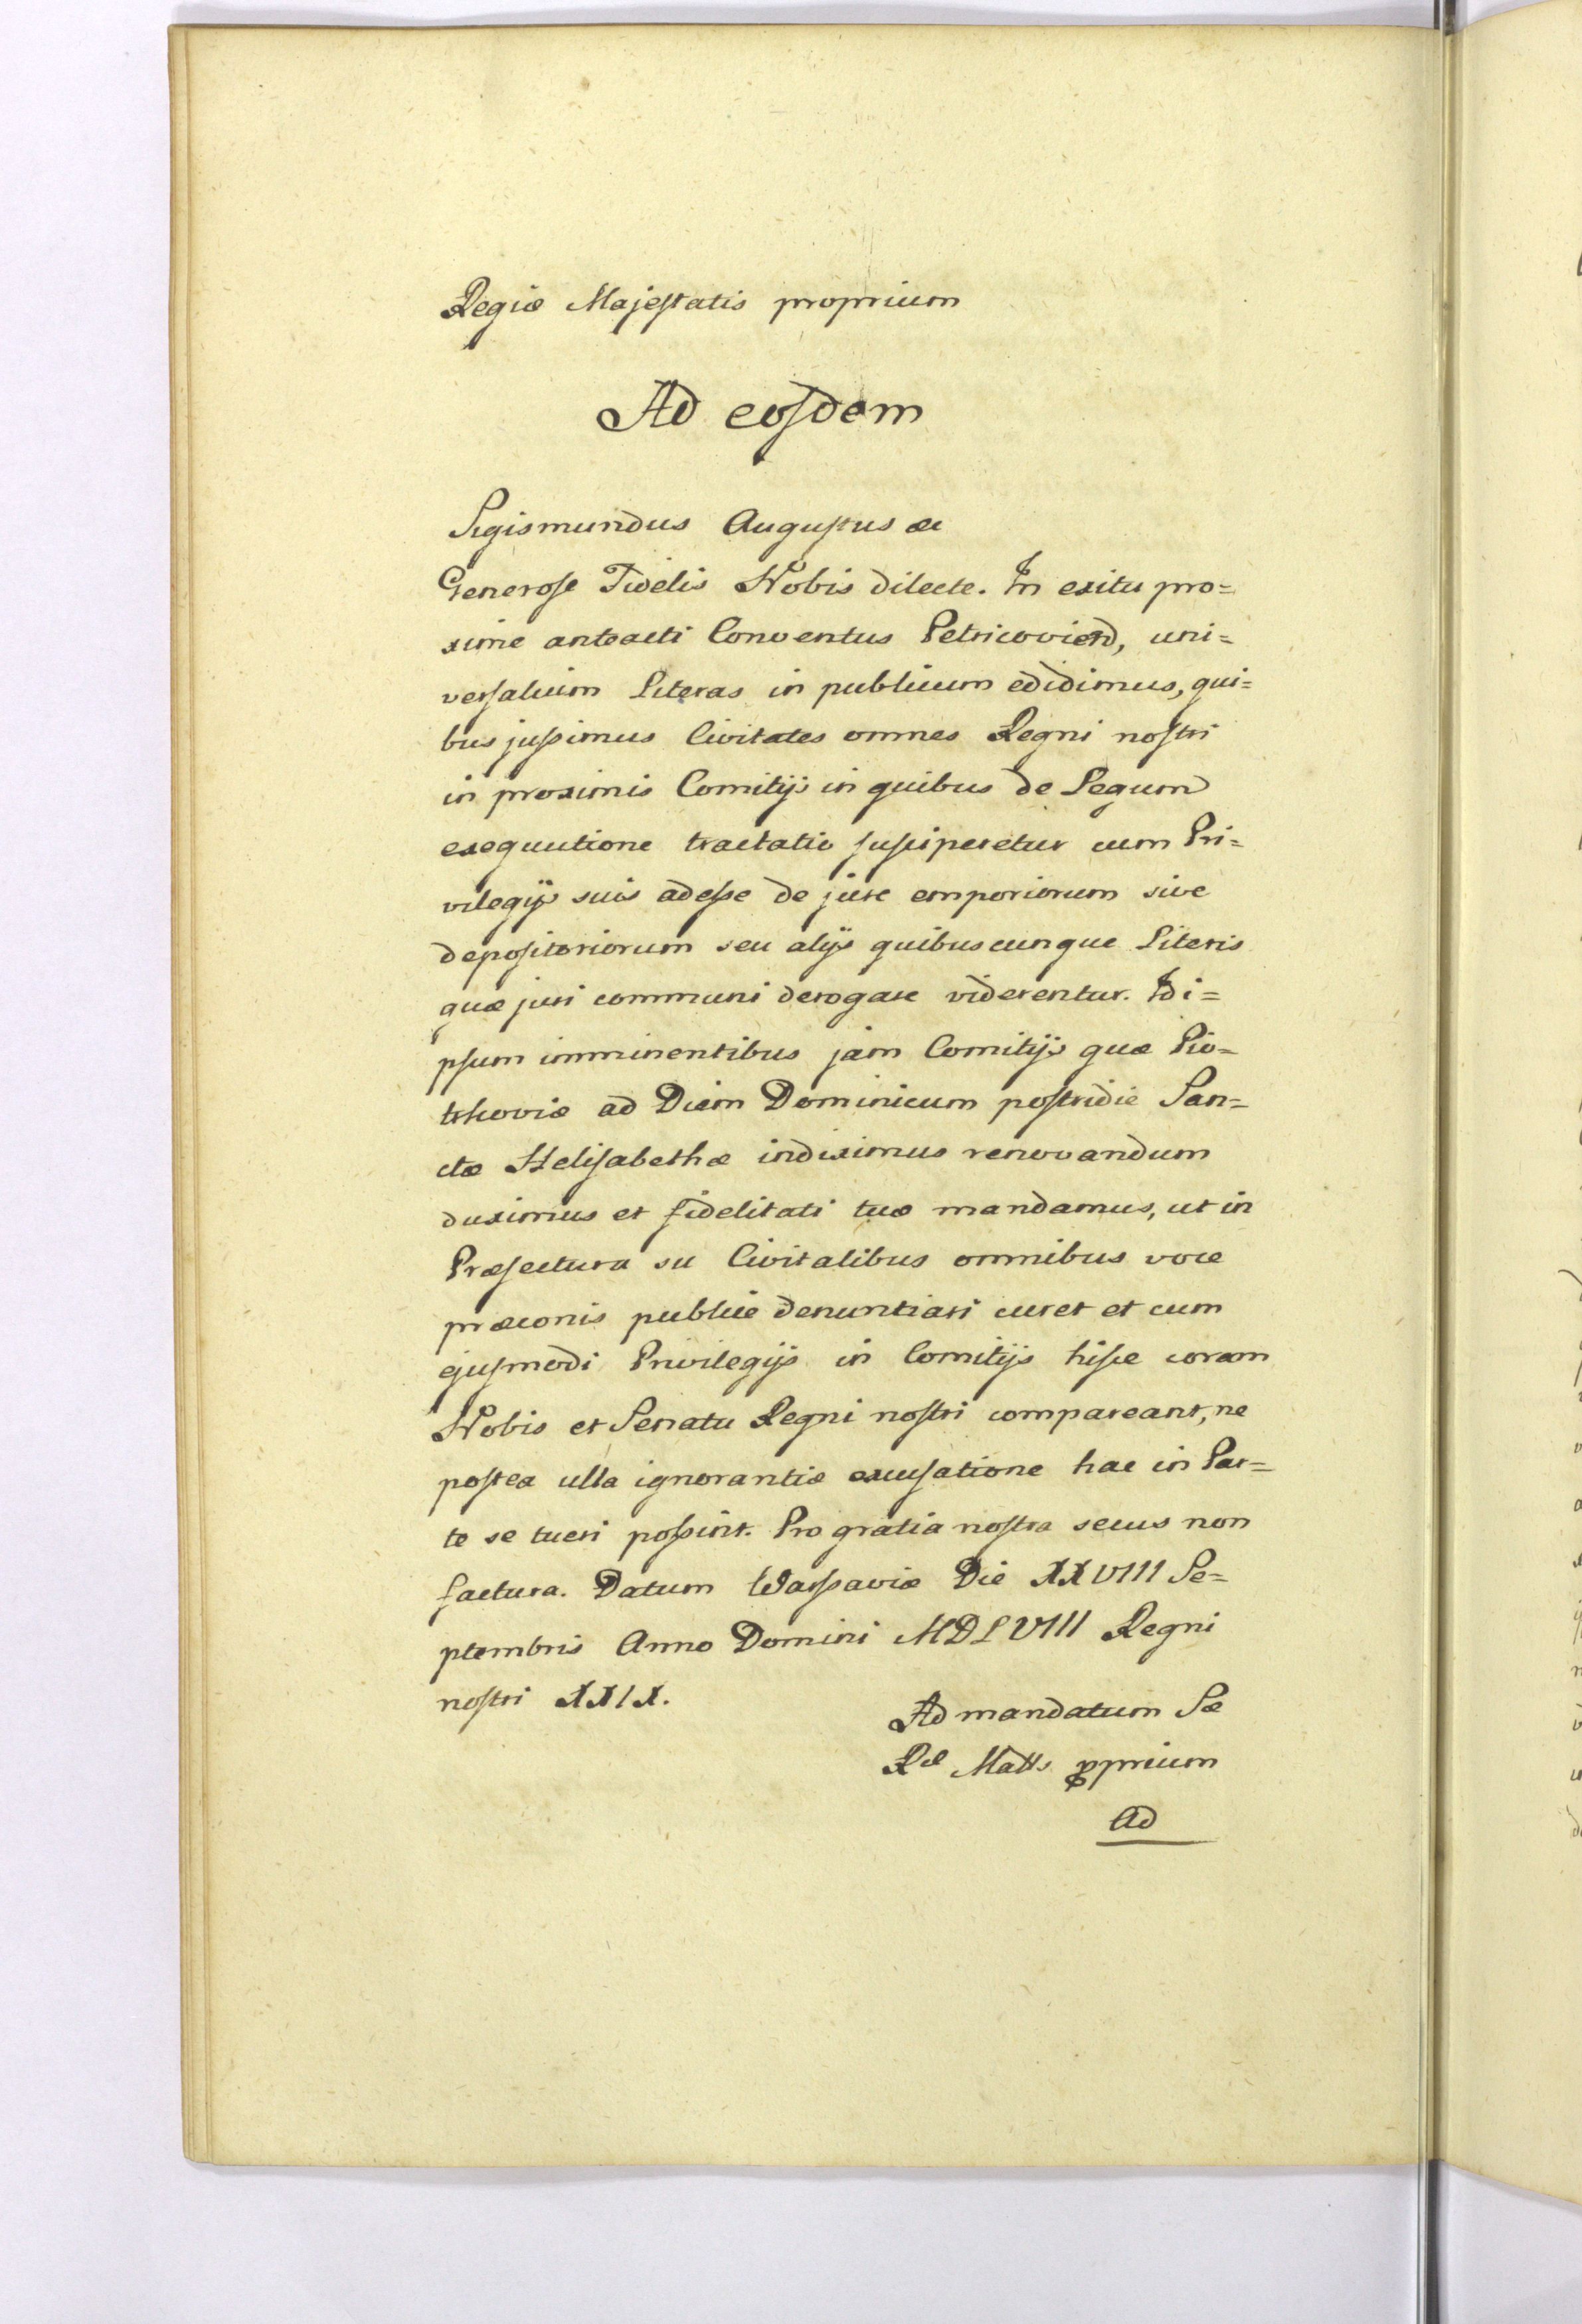 Regiæ Majestatis proprium
Ad eosdem
Sigismundus Augustus &c
Generose Fidelis Nobis dilecte. In exitu pro=
xime anteacti Conventus Petricovien, uni=
versalium Literas in publicum edidimus, qui=
bus jussimus Civitates omnes Regni nostri
in proximis Comitijs in quibus de Legum
exequutione tractatio susciperetur cum Pri=
vilegijs suis adesse de jure emporiorum sive
depositoriorum seu alijs quibuscunque Literis
quæ juri communi derogare viderentur. Id i=
psum imminentibus jam Comitijs quæ Pio=
trkoviæ ad Diem Dominicum postridie San=
ctæ Helisabethæ indiximus renovandum
duximus et fidelitati tuæ mandamus, ut in
Præfectura su Civitatibus omnibus voce
præconis publice denuntiari curet et cum
ejusmodi Privilegijs in Comitijs hisce coram
Nobis et Senatu Regni nostri compareant, ne
postea ulla ignorantiæ excusatione hac in Par=
te se tueri possint. Pro gratia nostra secus non
factura. Datum Warsaviæ Die XXVIII Se=
ptembris Anno Domini MDLVIII Regni
nostri XXIX.
Ad mandatum Sæ
Ræ Mattis pprium
Ad